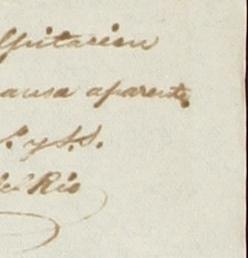 lpitacion
ausa aparente
S. y S.S.
del Rio